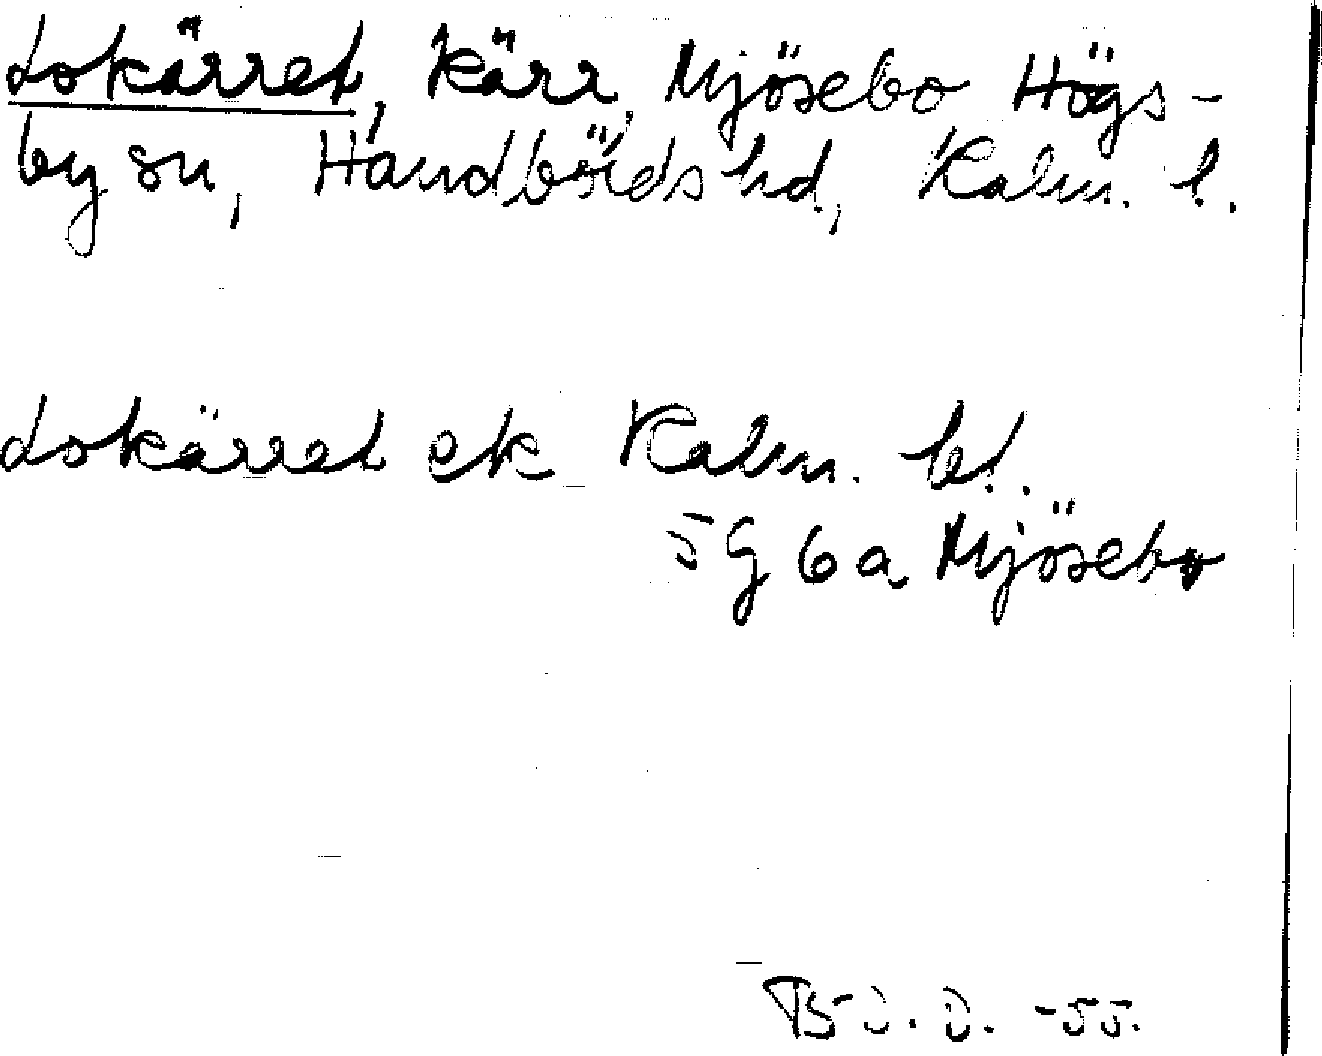 Lokärret, kärr, Mjösebo Högs-
by sn, Handbörds hd, Kalm. l.
Lokärret ek Kalm. bl.
5G 6a Mjösebo
-55.